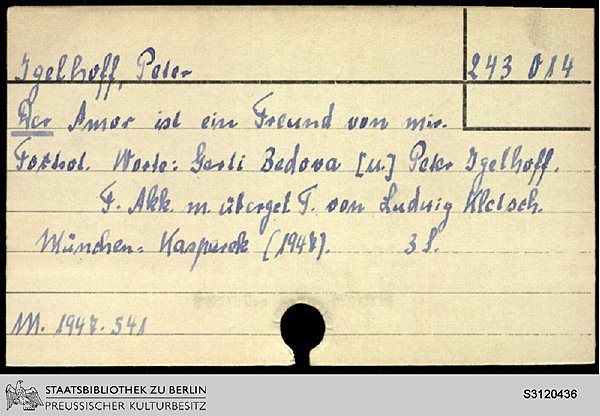 Igelhoff, Peter
243 014
Der Amor ist ein Freund von mir.
Foxtrot. Worte: Gerti Bedova [u.] Peter Igelhoff.
F. Akk. m. übergel. T. von Ludwig Kletsch.
München: Kasparek (1947). 3 S.
M. 1947. 541
STAATSBIBLIOTHEK ZU BERLIN
PREUSSISCHER KULTURBESITZ
S3120436